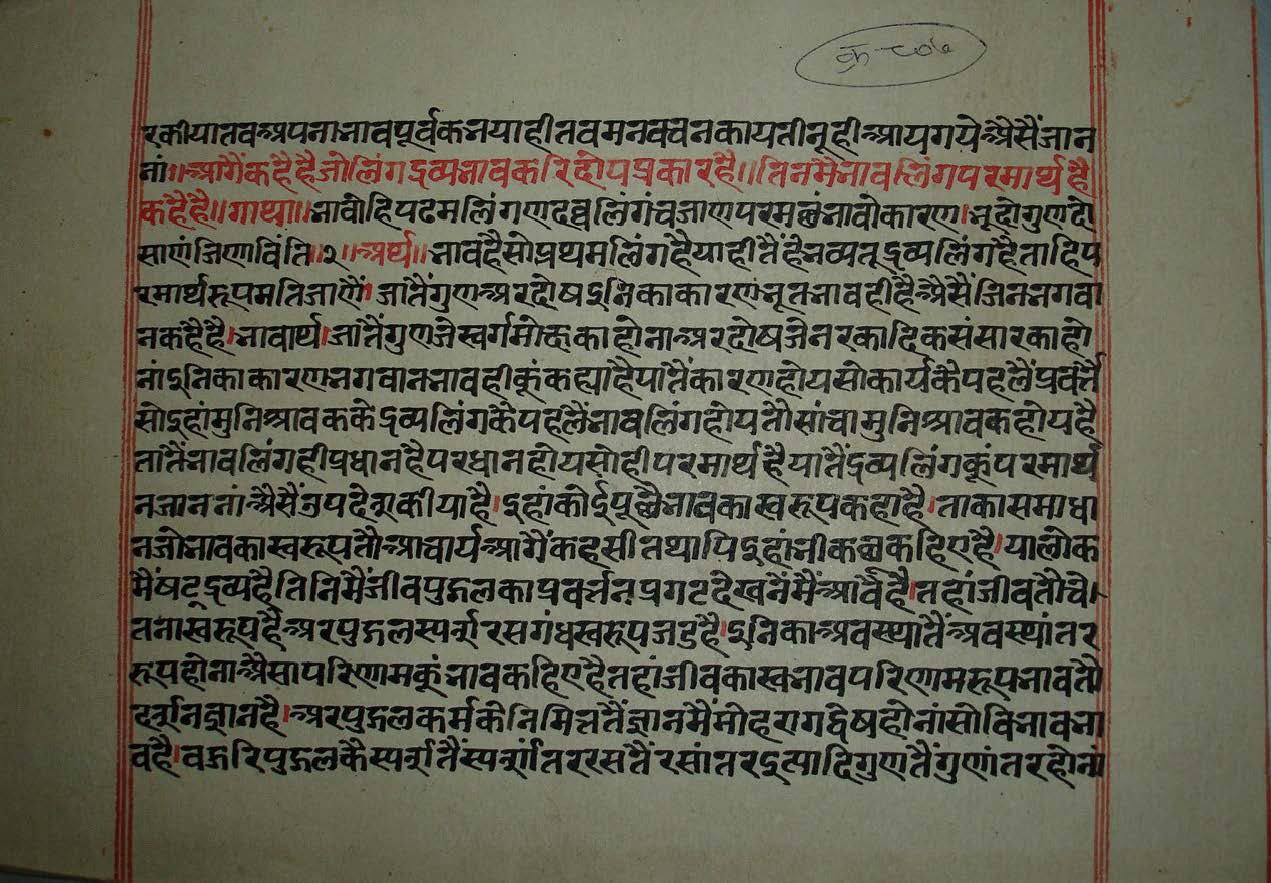 क-८०६
रकीयातवअपनाभावपूर्वकभयाहीतवमनवचनकायतीनूहीआयगयेऔसैंजान
नां॥आगैंकहैहैजोलिंगद्रव्यभावकरिदोयप्रकारहै॥तिनमैभावलिंगपरमार्थहै
कहैहै॥गाथा॥भावोहिपढमलिंगंणदव्वलिंगंचजाणपरमछंभावोकारण।भूदोगुणदो
साणंजिणाविंति॥२॥अर्थ॥भावहैसोप्रथमलिंगहैयाहीतैंहेभव्यतूद्रव्यलिंगहैताहिप
रमार्थरूपमतिजाणैं।जातैंगुणअरदोषइनिकाकारणभूतभावहीहैऔसैंजिनभगवा
नकहैहै।भावार्थ।जातैंगुणजेस्वर्गमोक्षकाहोनाअरदोषजेनरकादिकसंसारकाहो
नांइनिकाकारणभगवानभावहीकूंकह्याहैयातैंकारणहोयसोकार्यकैपहलैंप्रवर्त्तै
सोइहांमुनिश्रावककेद्रव्यलिंगकैपहलैंभावलिंगहोयतौसांचामुनिश्रावकहोयहै
तातैंभावलिंगहीप्रधानहैपरधानहोयसोहीपरमार्थहैयातैंद्रव्यलिंगकूंपरमार्थ
नजाननांऔसैंउपदेशकीयाहै।इहांकोईपूछैभावकास्वरूपकहाहै।ताकासमाधा
नजोभावकास्वरूपतौआचार्यआगैंकहसीतथापिइहांभीकछुकहिएहै।यालोक
मैंषट्द्रव्यहैतिनिमैंजीवपुद्गलकाप्रवर्त्तनप्रगटदेखनेंमैंआवैहै।तहांजीवतौचे
तनास्वरूपहैअरपुद्गलस्पर्शरसगंधस्वरूपजडहै।इनिकाअवस्थातैंअवस्थांतर
रूपहोनाऔसापरिणामकूंभावकहिएहैतहांजीवकास्वभावपरिणामरूपभावतौ
दर्शनज्ञानहै।अरपुद्गलकर्मकेनिमित्ततैंज्ञानमैंमोहरागद्वेषहोनांसोविभावभा
वहै।वहुरिपुद्गलकैस्पर्शतैंस्पर्शांतररसतैंरसांतरइत्यादिगुणतैंगुणांतरहोनां